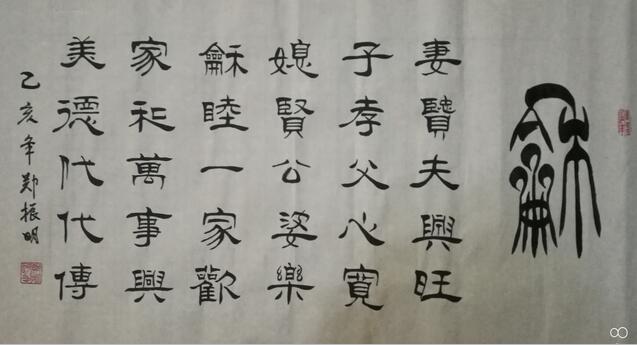 龢
妻賢夫興旺
子孝父心寬
媳賢公婆樂
龢睦一家歡
家和萬事興
美德代代傳
乙亥年鄭振明